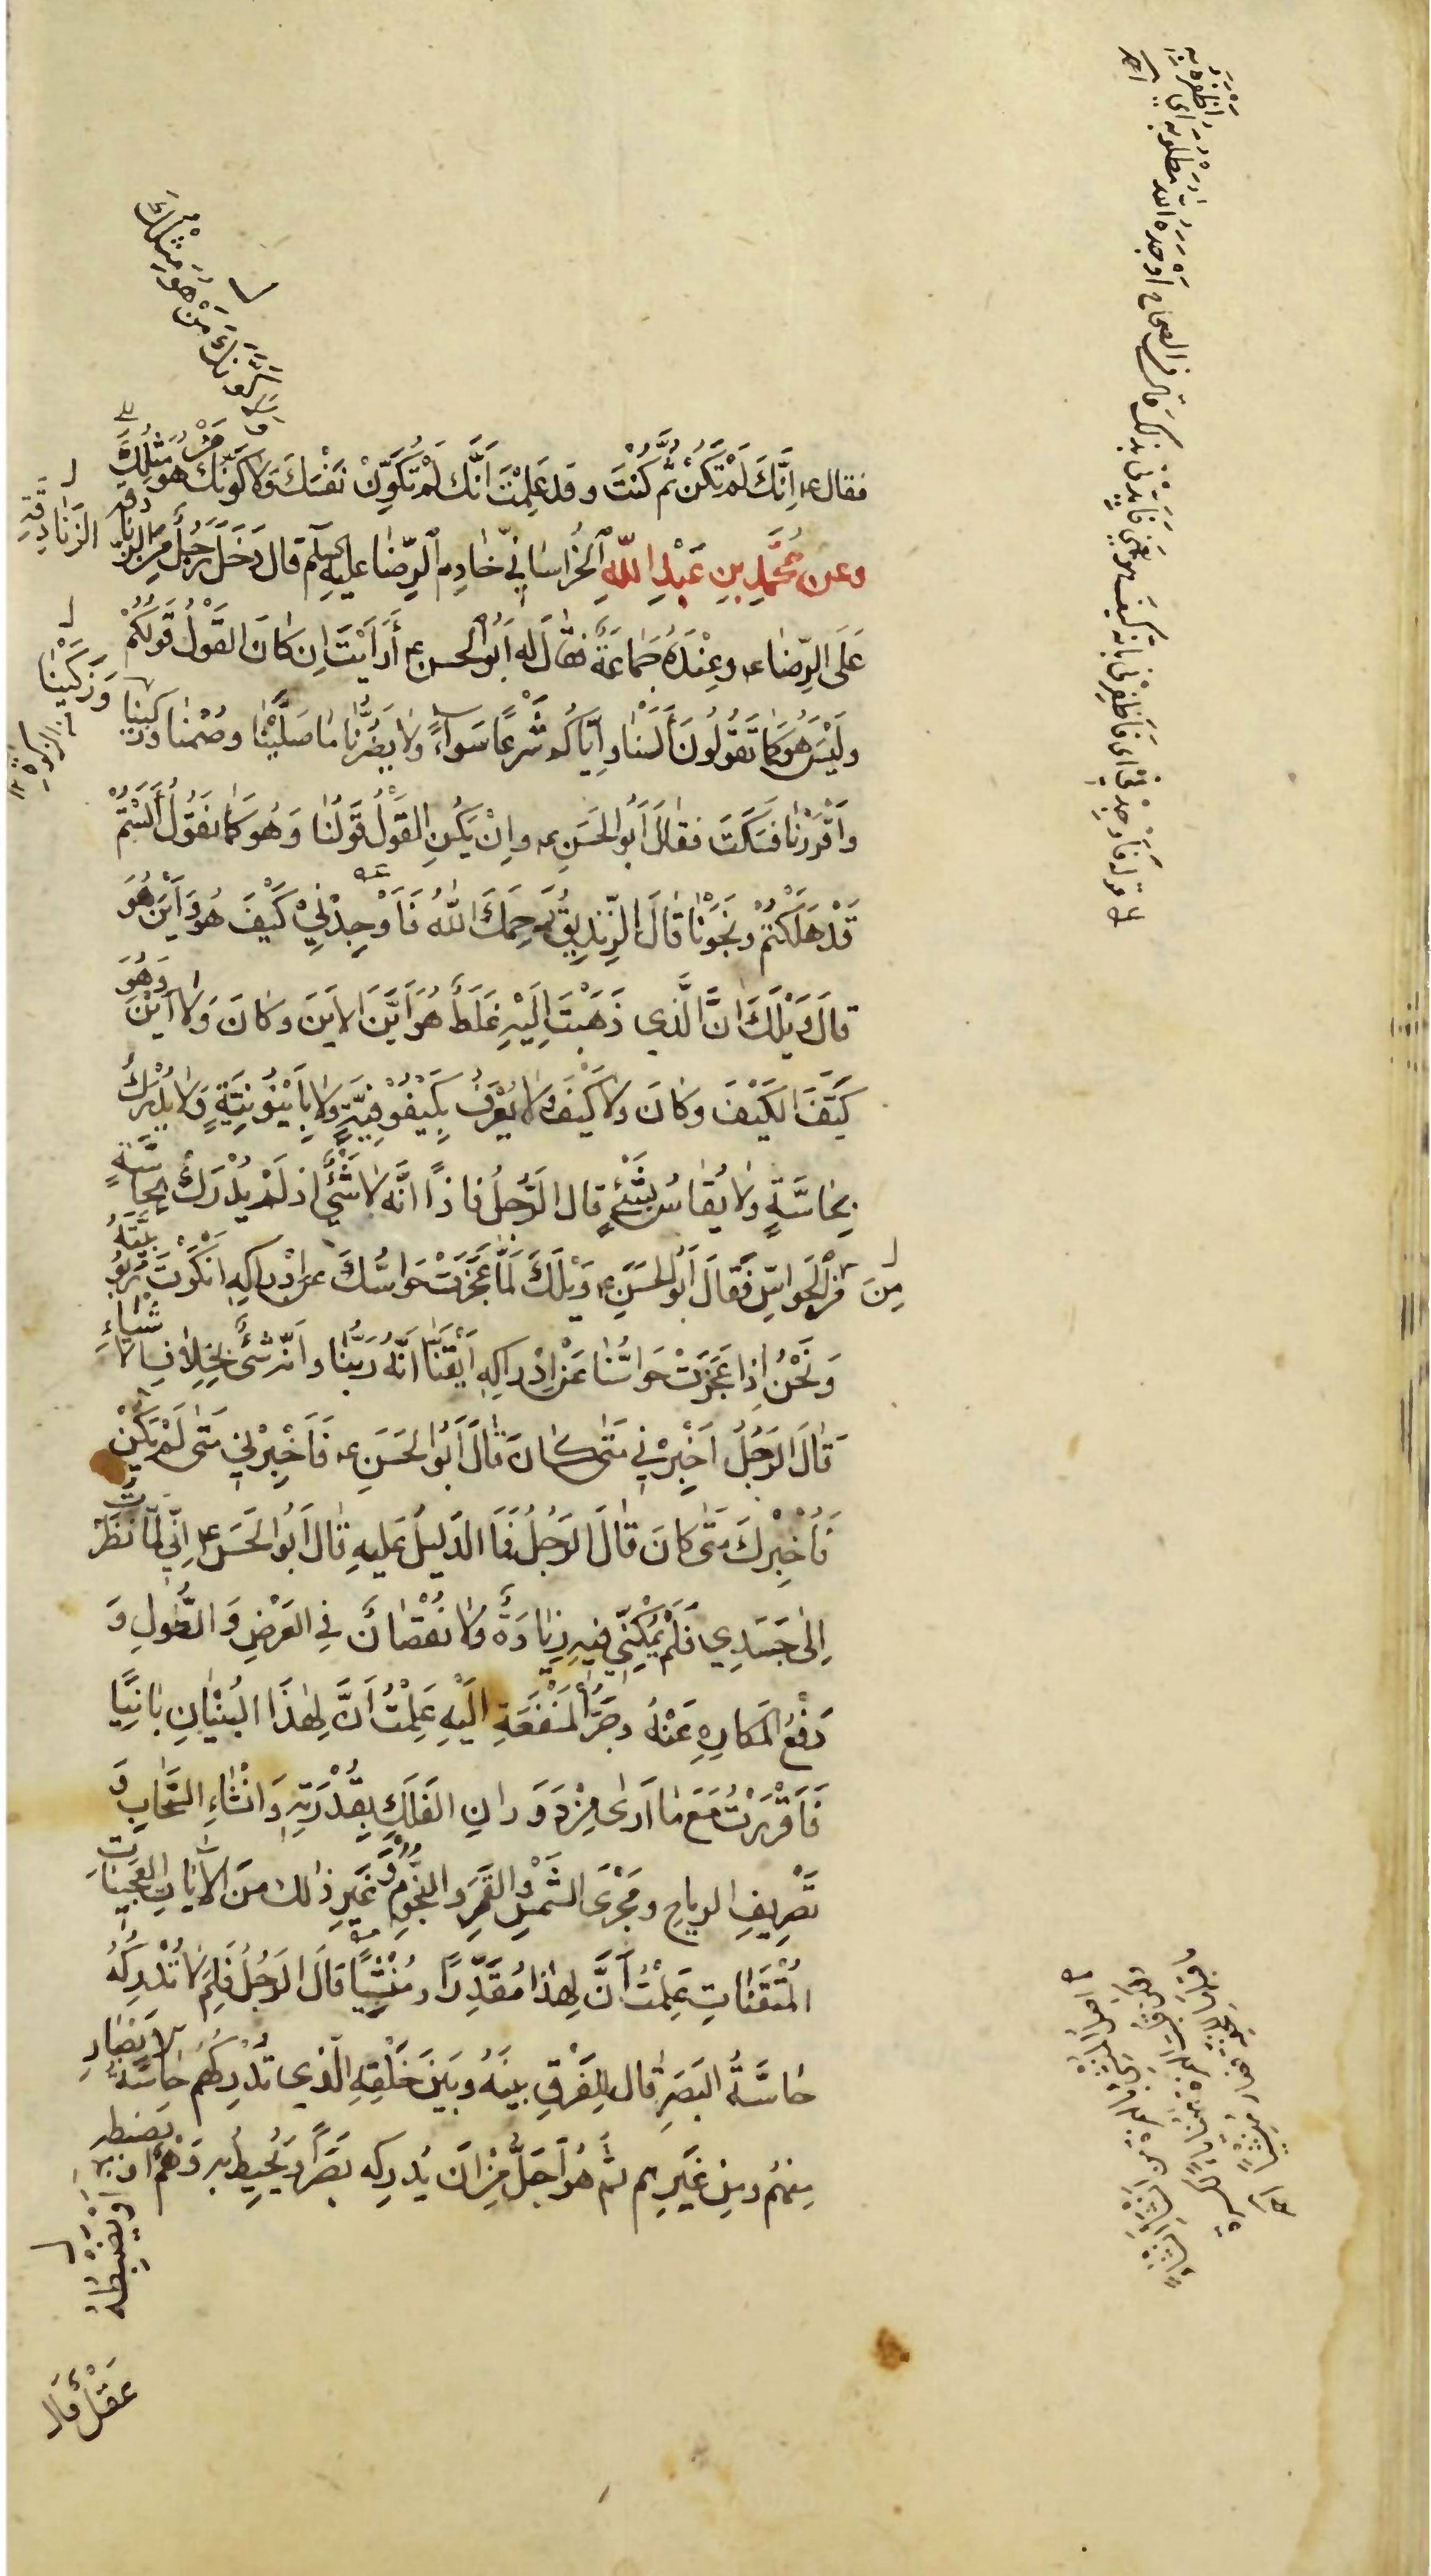 فقال ع إِنَّكَ لَمْ تَكُنْ ثُمَّ كُنْتَ وقد عَلِمْتَ أَنَّكَ لَمْ تُكَوِّنْ نَفْسَكَ وَلَا كَوَّنَكَ مَنْ هُوَ مِثْلُكَ
وعن مُحَمَّدِ بنِ عَبْدِ اللّهِ الخُرَاسَانِيِّ خَادِمِ الرِّضَا عليه السلم قال دَخَلَ رَجُلٌ مِنَ الزنادقة
عَلَى الرِّضَا ع وعِنْدَهُ جَمَاعَةٌ فقَالَ له أَبُو الحسن ع أَرَأَيْتَ اِن كَانَ القَوْلُ قَوْلَكُمْ
ولَيْسَ هُوَ كَمَا تَقُولُونَ أَلَسْنَا وإِيَّاكُم شَرْعًا سَوَاءً ولَا يَضُرُّنَا مَا صَلَّيْنَا وصُمْنَا وزكينا
وَأَقْرَرْنَا فسَكَتَ فقالَ أَبُو الحَسَنِ ع وإِنْ يَكُنِ القَوْلُ قَوْلَنَا وَهُوَ كَمَا نَقُولُ أَلَسْتُمْ
قَدْ هَلَكْتُمْ ونَجَوْنَا قَالَ الزِّنْدِيقُ رَحِمَكَ اللّهُ فَأَوْجِدْنِي كَيْفَ هُوَ وَأَيْنَ هُوَ
قالَ وَيْلَكَ اِنَّ الَّذِي ذَهَبْتَ إِلَيْهِ غَلَطٌ هُوَ أَيَّنَ الاَينَ وكانَ وَلَا أَيْنَ وَهُوَ
كَيَّفَ الكَيْفَ وكانَ ولا كَيْفَ ولَا يُعْرَفُ بِكَيْفُوفِيَّةٍ ولَا بِأَيْنُونِيَّةٍ وَلَا يُدْرَكُ
بِحَاسَّةٍ ولَا يُقَاسُ بِشَيْءٍ قال الرَّجُلُ فاذًا انَّه لا شَيْءَ اذ لَمْ يُدْرَكْ بِحَاسَّةٍ
مِنَ الحَوَاسِّ فَقَالَ أَبُو الحَسَنِ ع وَيْلَكَ لَمَّا عَجَزَتْ حَوَاسُّكَ عن إِدْراكِهِ أَنْكَرْتَ رُبُوبِيَّتَهُ
وَنَحْنُ إِذَا عَجَزَتْ حَوَاسُّنَا عَنْ إِدْراكِهِ أَيْقَنَّا أَنَّهُ رَبُّنَا وانّه شَيْءٌ بِخِلَافِ الأشْيَاءِ
قَالَ الرَّجُلُ أَخْبِرْنِي مَتَى كَانَ قَالَ أَبُو الحَسَنِ ع فَأَخْبِرْنِي مَتَى لَمْ يَكُنْ
فَأُخْبِرَكَ مَتَى كانَ قَالَ الرَّجُلُ فَمَا الدَّلِيلُ عَلَيهِ قَالَ أَبُو الحَسَنِ ع إِنِّي لَمَّا نَظَرْتُ
إِلَى جَسَدِي فَلَمْ يُمْكِنِّي فِيهِ زِيَادَةٌ ولَا نُقْصَانٌ فِي العَرْضِ وَالطُّولِ وَ
دَفْعُ المَكَارِهِ عَنْهُ وجَرُّ المَنْفَعَةِ إِلَيْهِ عَلِمْتُ أَنَّ لِهَذَا البُنْيَانِ بَانِيًا
فَأَقْرَرْتُ مَعَ مَا أَرَى مِنْ دَوَرانِ الفَلَكِ بِقُدْرَتِهِ وَإِنْشَاءِ السَّحَابِ وَ
تَصْرِيفِ الرياحِ ومَجْرَى الشَّمْسِ والقَمَرِ والنُّجُومِ وَغَيْرِ ذَلكَ مِنَ الآيَاتِ العَجِيبَاتِ
المُتْقَنَاتِ عَلِمْتُ أَنَّ لِهَذَا مُقَدِّرًا ومُنْشِيًا قَالَ الرَّجُلُ فَلِمَ لَا تُدْرِكُهُ
حَاسَّةُ البَصَرِ قال لِلفَرْقِ بينَهُ وبَيْنَ خَلْقِهِ الَّذِي تُدْرِكُهُم حَاسَّةُ الابْصَارِ
مِنْهُم ومِن غَيْرِهِم ثُمَّ هُوَ أَجَلُّ مِنْ اَن يُدرِكَه بَصَرٌ أو يُحِيطَ به وَهْمٌ
عَقْلٌ قَالَ
مَنْ هُوَ مِثْلُكَ
الزَّنَادِقَةِ
وَزَكَّيْنَا
أو يَضْبِطَهُ